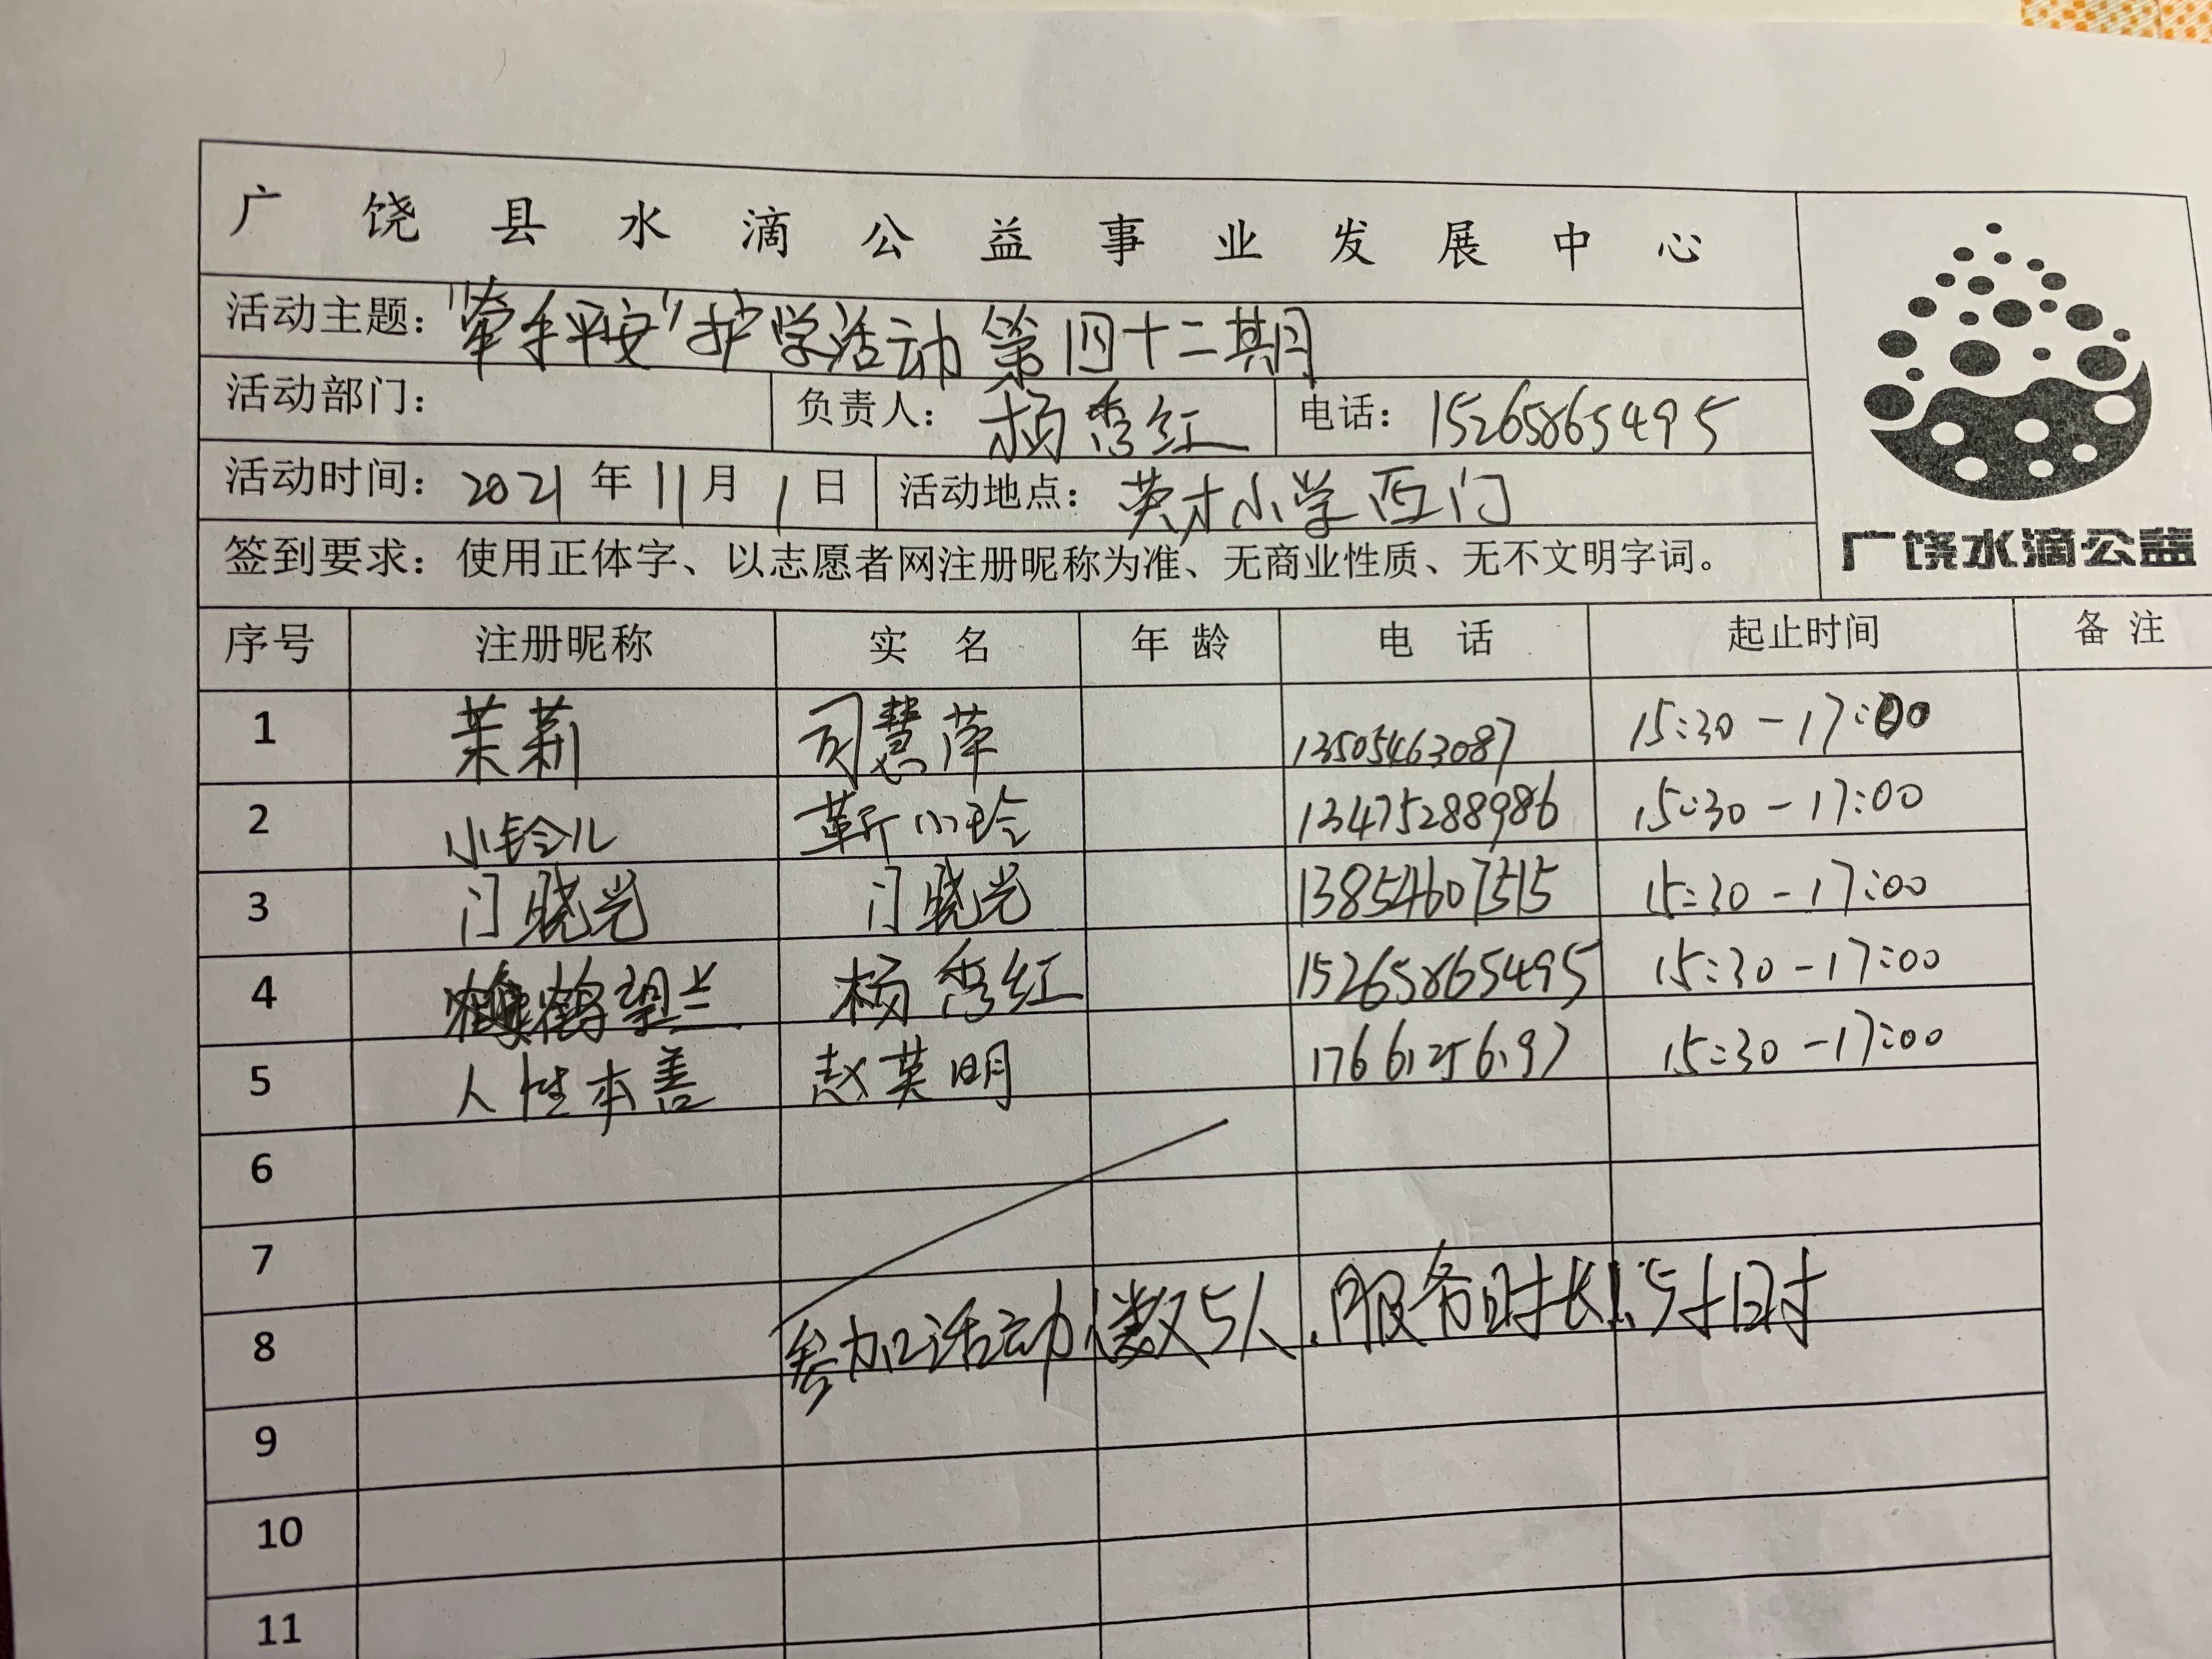 广饶县水滴公益事业发展中心
活动主题："牵手平安"护学活动第四十二期
活动部门： 负责人：杨秀红 电话：15265865495
活动时间：2021年11月1日 活动地点：英才小学西门
签到要求：使用正体字、以志愿者网注册昵称为准、无商业性质、无不文明字词。
广饶水滴公益
序号 注册昵称 实名 年龄 电话 起止时间 备注
1 茉莉 司慧萍 13505463087 15:30-17:00
2 小铃儿 靳小玲 13475288986 15:30-17:00
3 门晓光 门晓光 13854607515 15:30-17:00
4 鹤望兰 杨秀红 15265865495 15:30-17:00
5 人性本善 赵英明 17661256197 15:30-17:00
6
7
8 参加活动人数5人.服务时长1.5小时
9
10
11